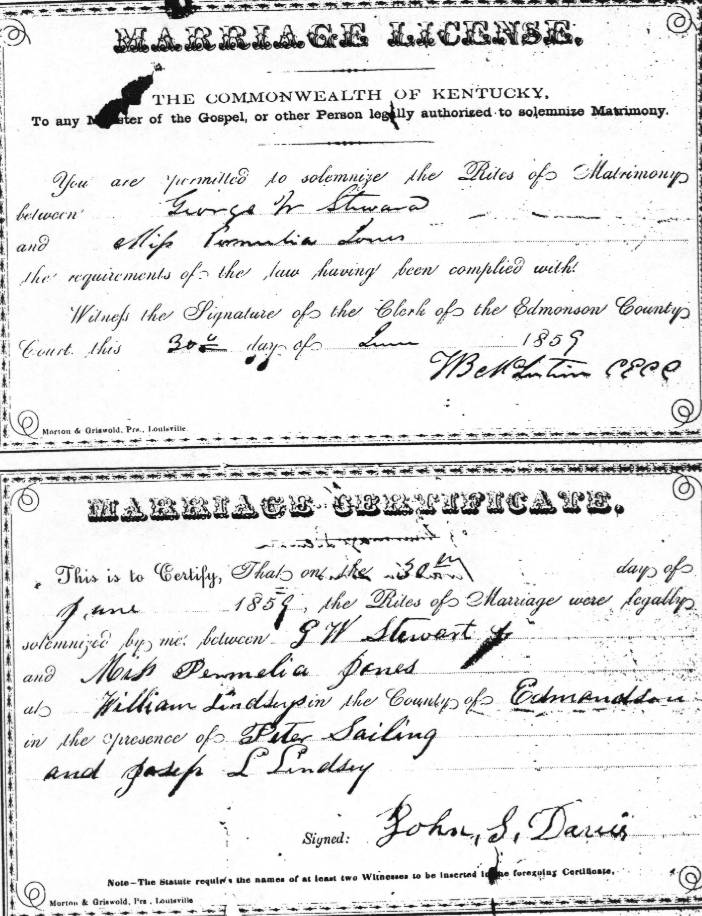 MARRIAGE LICENSE.
THE COMMONWEALTH OF KENTUCKY,
To any Minister of the Gospel, or other Person legally authorized to solemnize Matrimony.
You are permitted to solemnize the Rites of Matrimony
between George W Steward
and Miss Permelia Jones
the requirements of the law having been complied with.
Witness the Signature of the Clerk of the Edmonson County
Court this 30th day of June 1859
Morton & Griswold, Prs., Louisville
MARRIAGE CERTIFICATE.
This is to Certify, That on the 30th day of
June 1859, the Rites of Marriage were legally
solemnized by me between G W Stewart
and Miss Permelia Jones
at William Lindseys in the County of Edmondson
in the presence of Peter Sailing
and Josep L Lindsey
Signed: John, S, Davis
Note—The Statute requires the names of at least two Witnesses to be inserted in the foregoing Certificate.
Morton & Griswold, Prs., Louisville